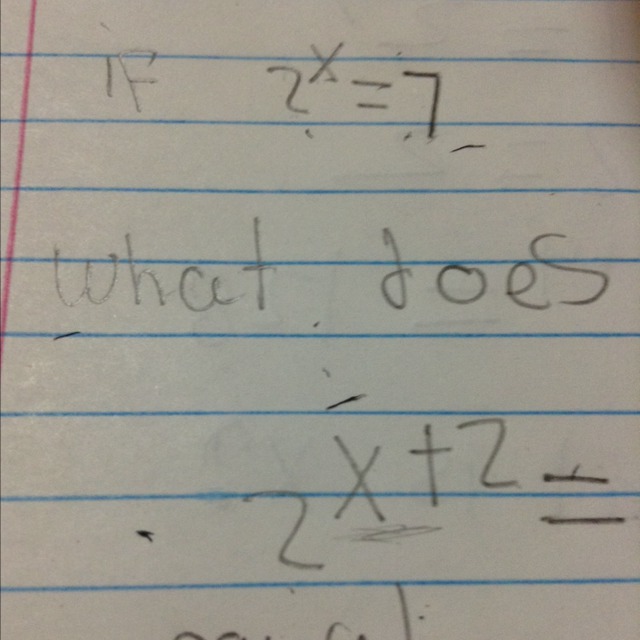 IF 2^x = 7
What does
2^x+2 =